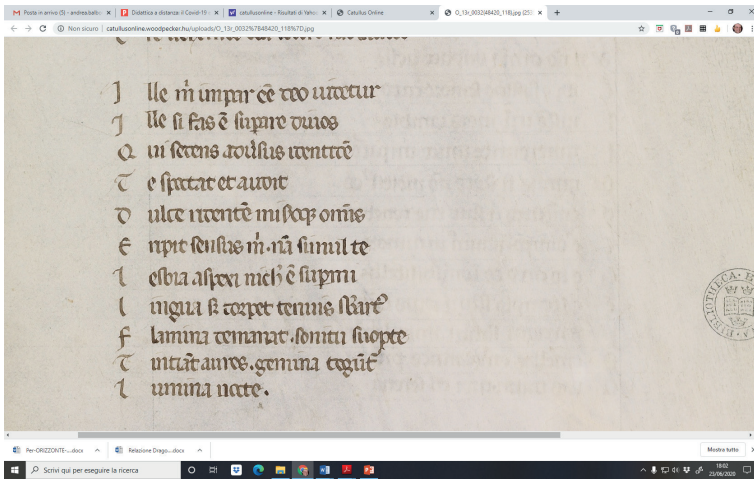 Posta in arrivo (5) - andrea.balbo
Didattica a distanza: il Covid-19
catullusonline - Risultati di Yaho
Catullus Online
O_13r_0032{48420_118}.jpg (253
Non sicuro | catullusonline.woodpecker.hu/uploads/O_13r_0032%7B48420_118%7D.jpg
I lle m̍ impar cē deo uidetur
I lle si fas ē suꝑare diuos
Q ui sedens adūsus identidē
T e spectat et audit
D ulce ridentē misoqꝫ omīs
E ripit sensus m̍. nā simul te
L esbia aspexi nichᷣ ē suꝑmi
L ingua sꝫ torpet tenuis
F lamina demanat. sonitu suopte
T intīāt aures. gemina tegūt᷑
L umina nocte.
BIBLIOTHECA
Per-ORIZZONTE-...docx
Relazione Drago...docx
Mostra tutto
Scrivi qui per eseguire la ricerca
18:02
23/06/2020